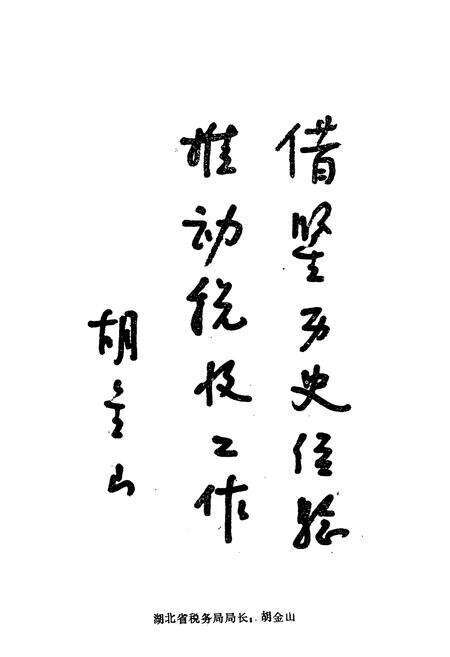 借鉴历史经验
推动税收工作
胡金山
湖北省税务局局长：胡金山